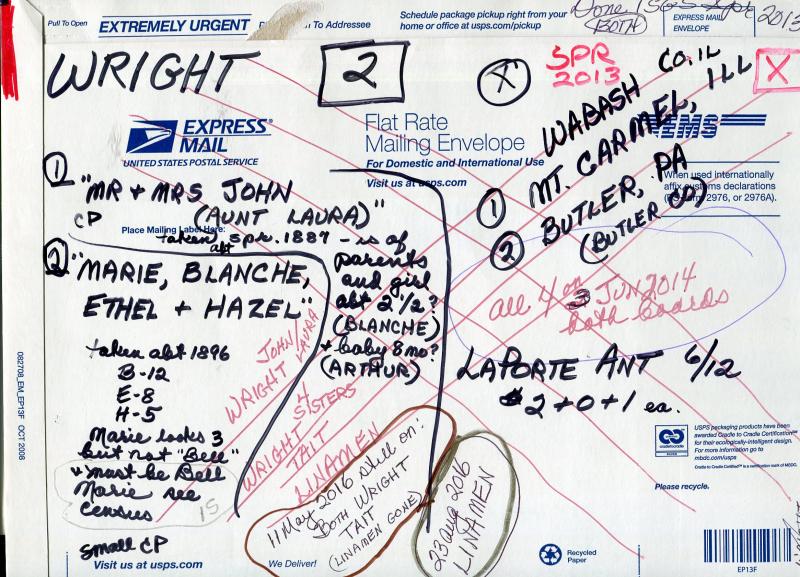 Pull To Open
EXTREMELY URGENT
To Addressee
Schedule package pickup right from your
home or office at usps.com/pickup
Done
(BOTH)
EXPRESS MAIL
ENVELOPE
2013
WRIGHT
2
X
SPR
2013
X
WABASH CO. IL
① MT. CARMEL, ILL
② BUTLER, PA
(BUTLER CO)
EXPRESS
MAIL
UNITED STATES POSTAL SERVICE
Flat Rate
Mailing Envelope
For Domestic and International Use
Visit us at usps.com
EMS
When used internationally
affix customs declarations
2976, or 2976A).
① "MR + MRS JOHN
CP
(AUNT LAURA)"
Place Mailing Label Here:
taken abt spr. 1887 - is of
parents
and girl
abt 2 1/2?
(BLANCHE)
+ baby 8 mo?
(ARTHUR)
② "MARIE, BLANCHE,
ETHEL + HAZEL"
taken abt 1896
B-12
E-8
H-5
Marie looks 3
but not "Bell"
+ must be Bell
Marie see
census
15
small CP
Visit us at usps.com
JOHN/
WRIGHT LAURA
4
WRIGHT SISTERS
TAIT
LINAMEN
all 4 on
3 JUN 2014
both boards
LAPORTE ANT 6/12
$2+0+1 ea.
11 May 2016 still on:
BOTH WRIGHT
TAIT
(LINAMEN GONE)
23 aug 2016
LINAMEN
We Deliver!
USPS packaging products have been
awarded Cradle to Cradle Certification
for their ecologically-intelligent design.
For more information go to
mbdc.com/usps
Cradle to Cradle Certified is a certification mark of MBDC.
Please recycle.
Recycled
Paper
EP13F
082708_EM_EP13F OCT 2008